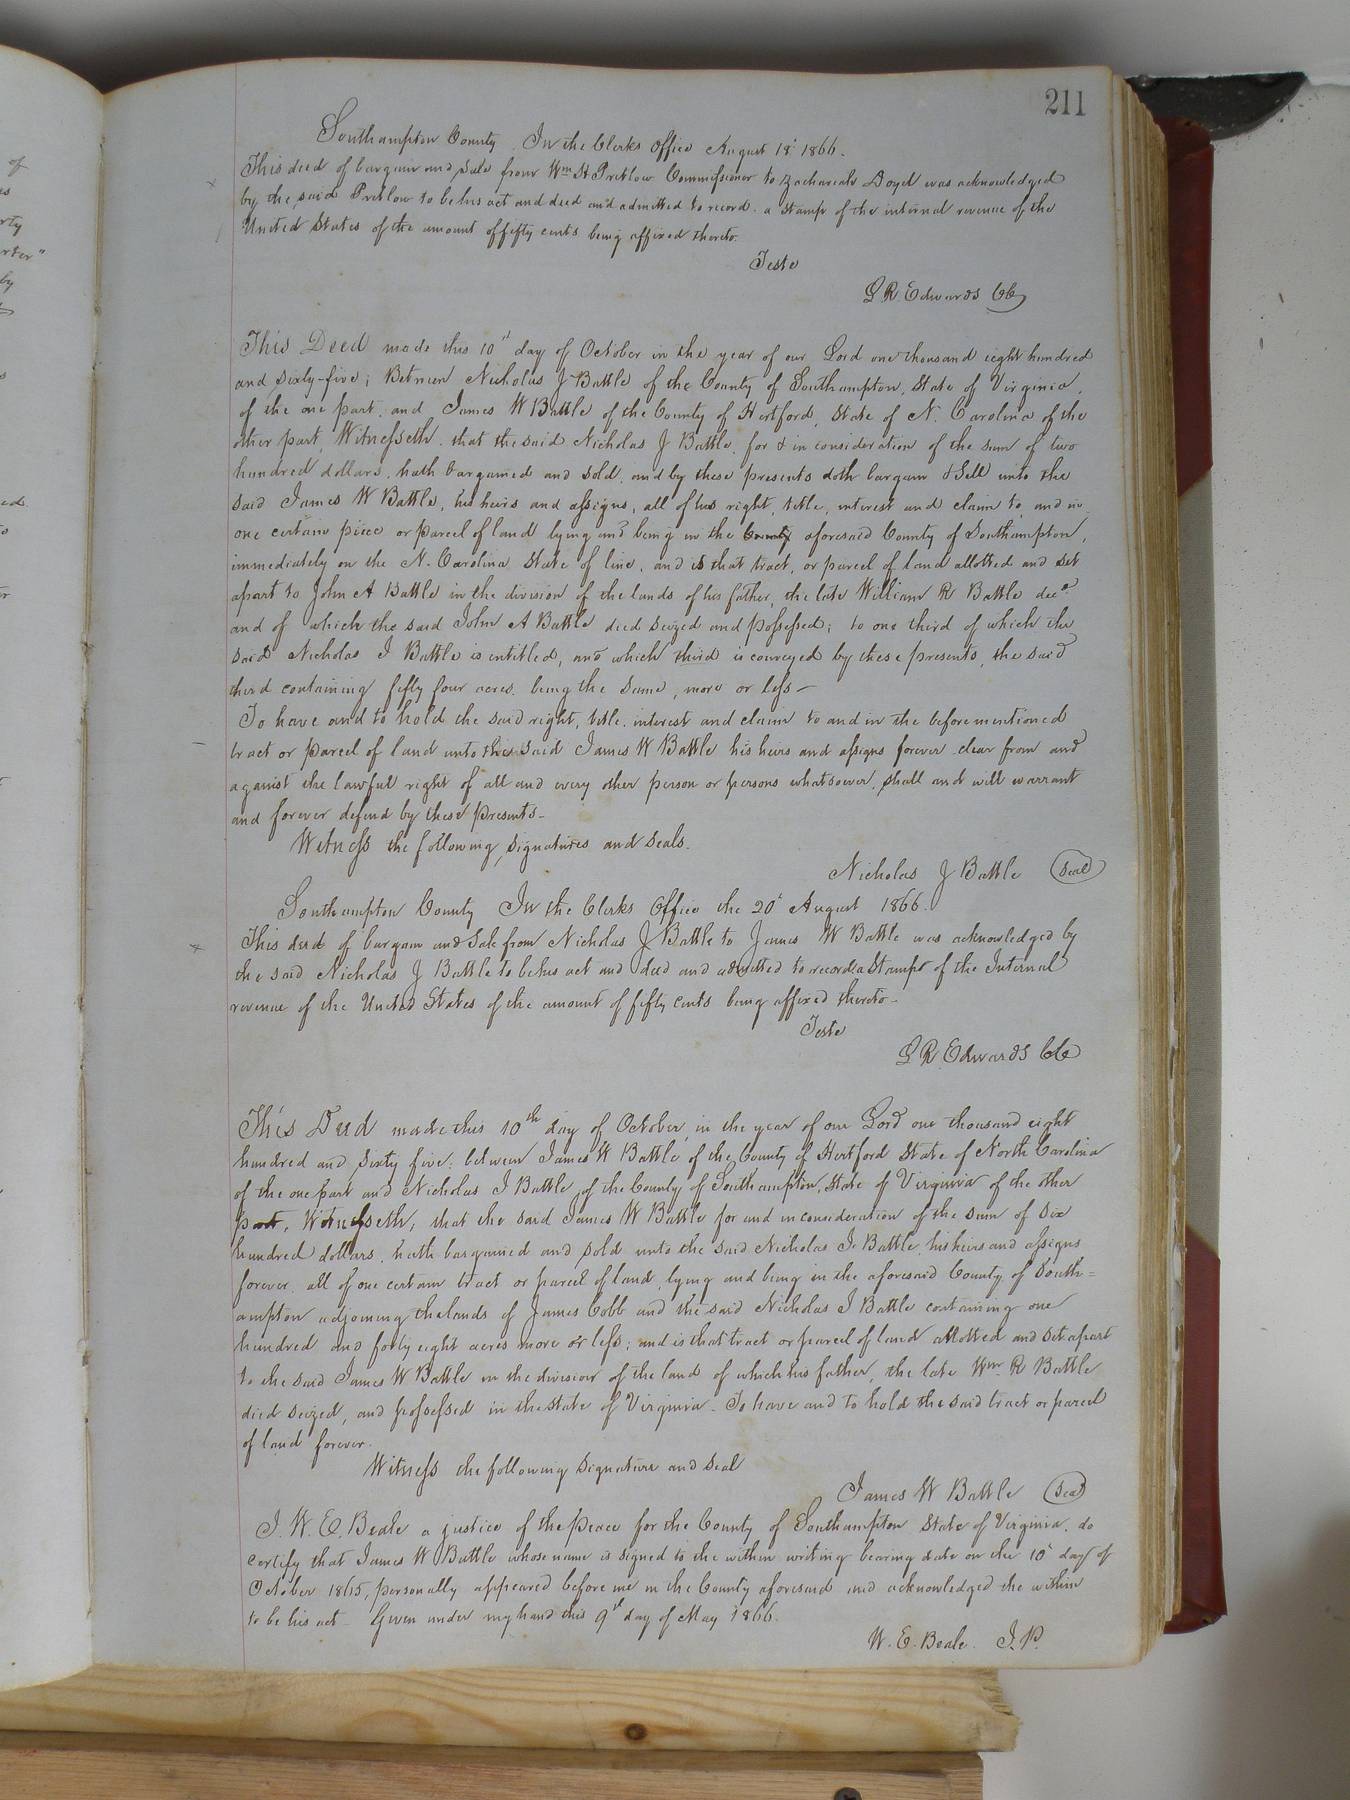 211
Southampton County In the Clerks Office August 18' 1866.
This deed of bargain and sale from Wm H Pretlow Commissioner to Zachariah Doyel was acknowledged
by the said Pretlow to be his act and deed and admitted to record. a stamp of the internal revenue of the
United States of the amount of fifty cents being affixed thereto.
Teste
L R. Edwards CC
This Deed made this 10th day of October in the year of our Lord one thousand eight hundred
and sixty-five; Between Nicholas J Battle of the County of Southampton, State of Virginia,
of the one part, and James W Battle of the County of Hertford, State of N. Carolina of the
other part, Witnesseth, that the said Nicholas J Battle, for & in consideration of the sum of two
hundred dollars, hath bargained and sold, and by these presents doth bargain & Sell unto the
said James W Battle, his heirs and assigns, all of his right, title, interest and claim to, and in
one certain piece or parcel of land lying and being in the County aforesaid County of Southampton,
immediately on the N. Carolina State of line, and is that tract, or parcel of land allotted and set
apart to John A Battle in the division of the lands of his father, the late William R Battle decd
and of which the said John A Battle died seized and possessed; to one third of which the
said Nicholas J Battle is entitled, and which third is conveyed by these presents, the said
third containing fifty four acres, being the same, more or less—
To have and to hold the said right, title, interest and claim to and in the before mentioned
tract or parcel of land unto the said James W Battle his heirs and assigns forever clear from and
against the lawful right of all and every other person or persons whatsoever, shall and will warrant
and forever defend by these presents-
Witness the following signatures and seals.
Nicholas J Battle (Seal)
Southampton County In the Clerks Office the 20' August 1866.
This deed of bargain and Sale from Nicholas J Battle to James W Battle was acknowledged by
the said Nicholas J Battle to be his act and deed and admitted to record a Stamp of the Internal
revenue of the United States of the amount of fifty cents being affixed thereto-
Teste
L R. Edwards CC
This Deed made this 10th day of October, in the year of our Lord one thousand eight
hundred and sixty five: between James W Battle of the County of Hertford State of North Carolina
of the one part and Nicholas J Battle of the County of Southampton, State of Virginia of the other
part, Witnesseth, that the said James W Battle for and in consideration of the sum of six
hundred dollars, hath bargained and sold unto the said Nicholas J. Battle, his heirs and assigns
forever, all of one certain tract or parcel of land, lying and being in the aforesaid County of South=
ampton adjoining the lands of James Cobb and the said Nicholas J Battle containing one
hundred and forty eight acres more or less; and is that tract or parcel of land allotted and set apart
to the said James W Battle in the division of the land of which his father, the late Wm R Battle
died seized, and possessed in the state of Virginia- To have and to hold the said tract or parcel
of land forever.
Witness the following Signature and Seal
James W Battle (Seal)
I. W. E. Beale a justice of the peace for the County of Southampton State of Virginia, do
certify that James W Battle whose name is signed to the within writing bearing date on the 10' day of
October 1865, personally appeared before me in the County aforesaid and acknowledged the within
to be his act- Given under my hand this 9th day of May 1866.
W. E. Beale. J. P.